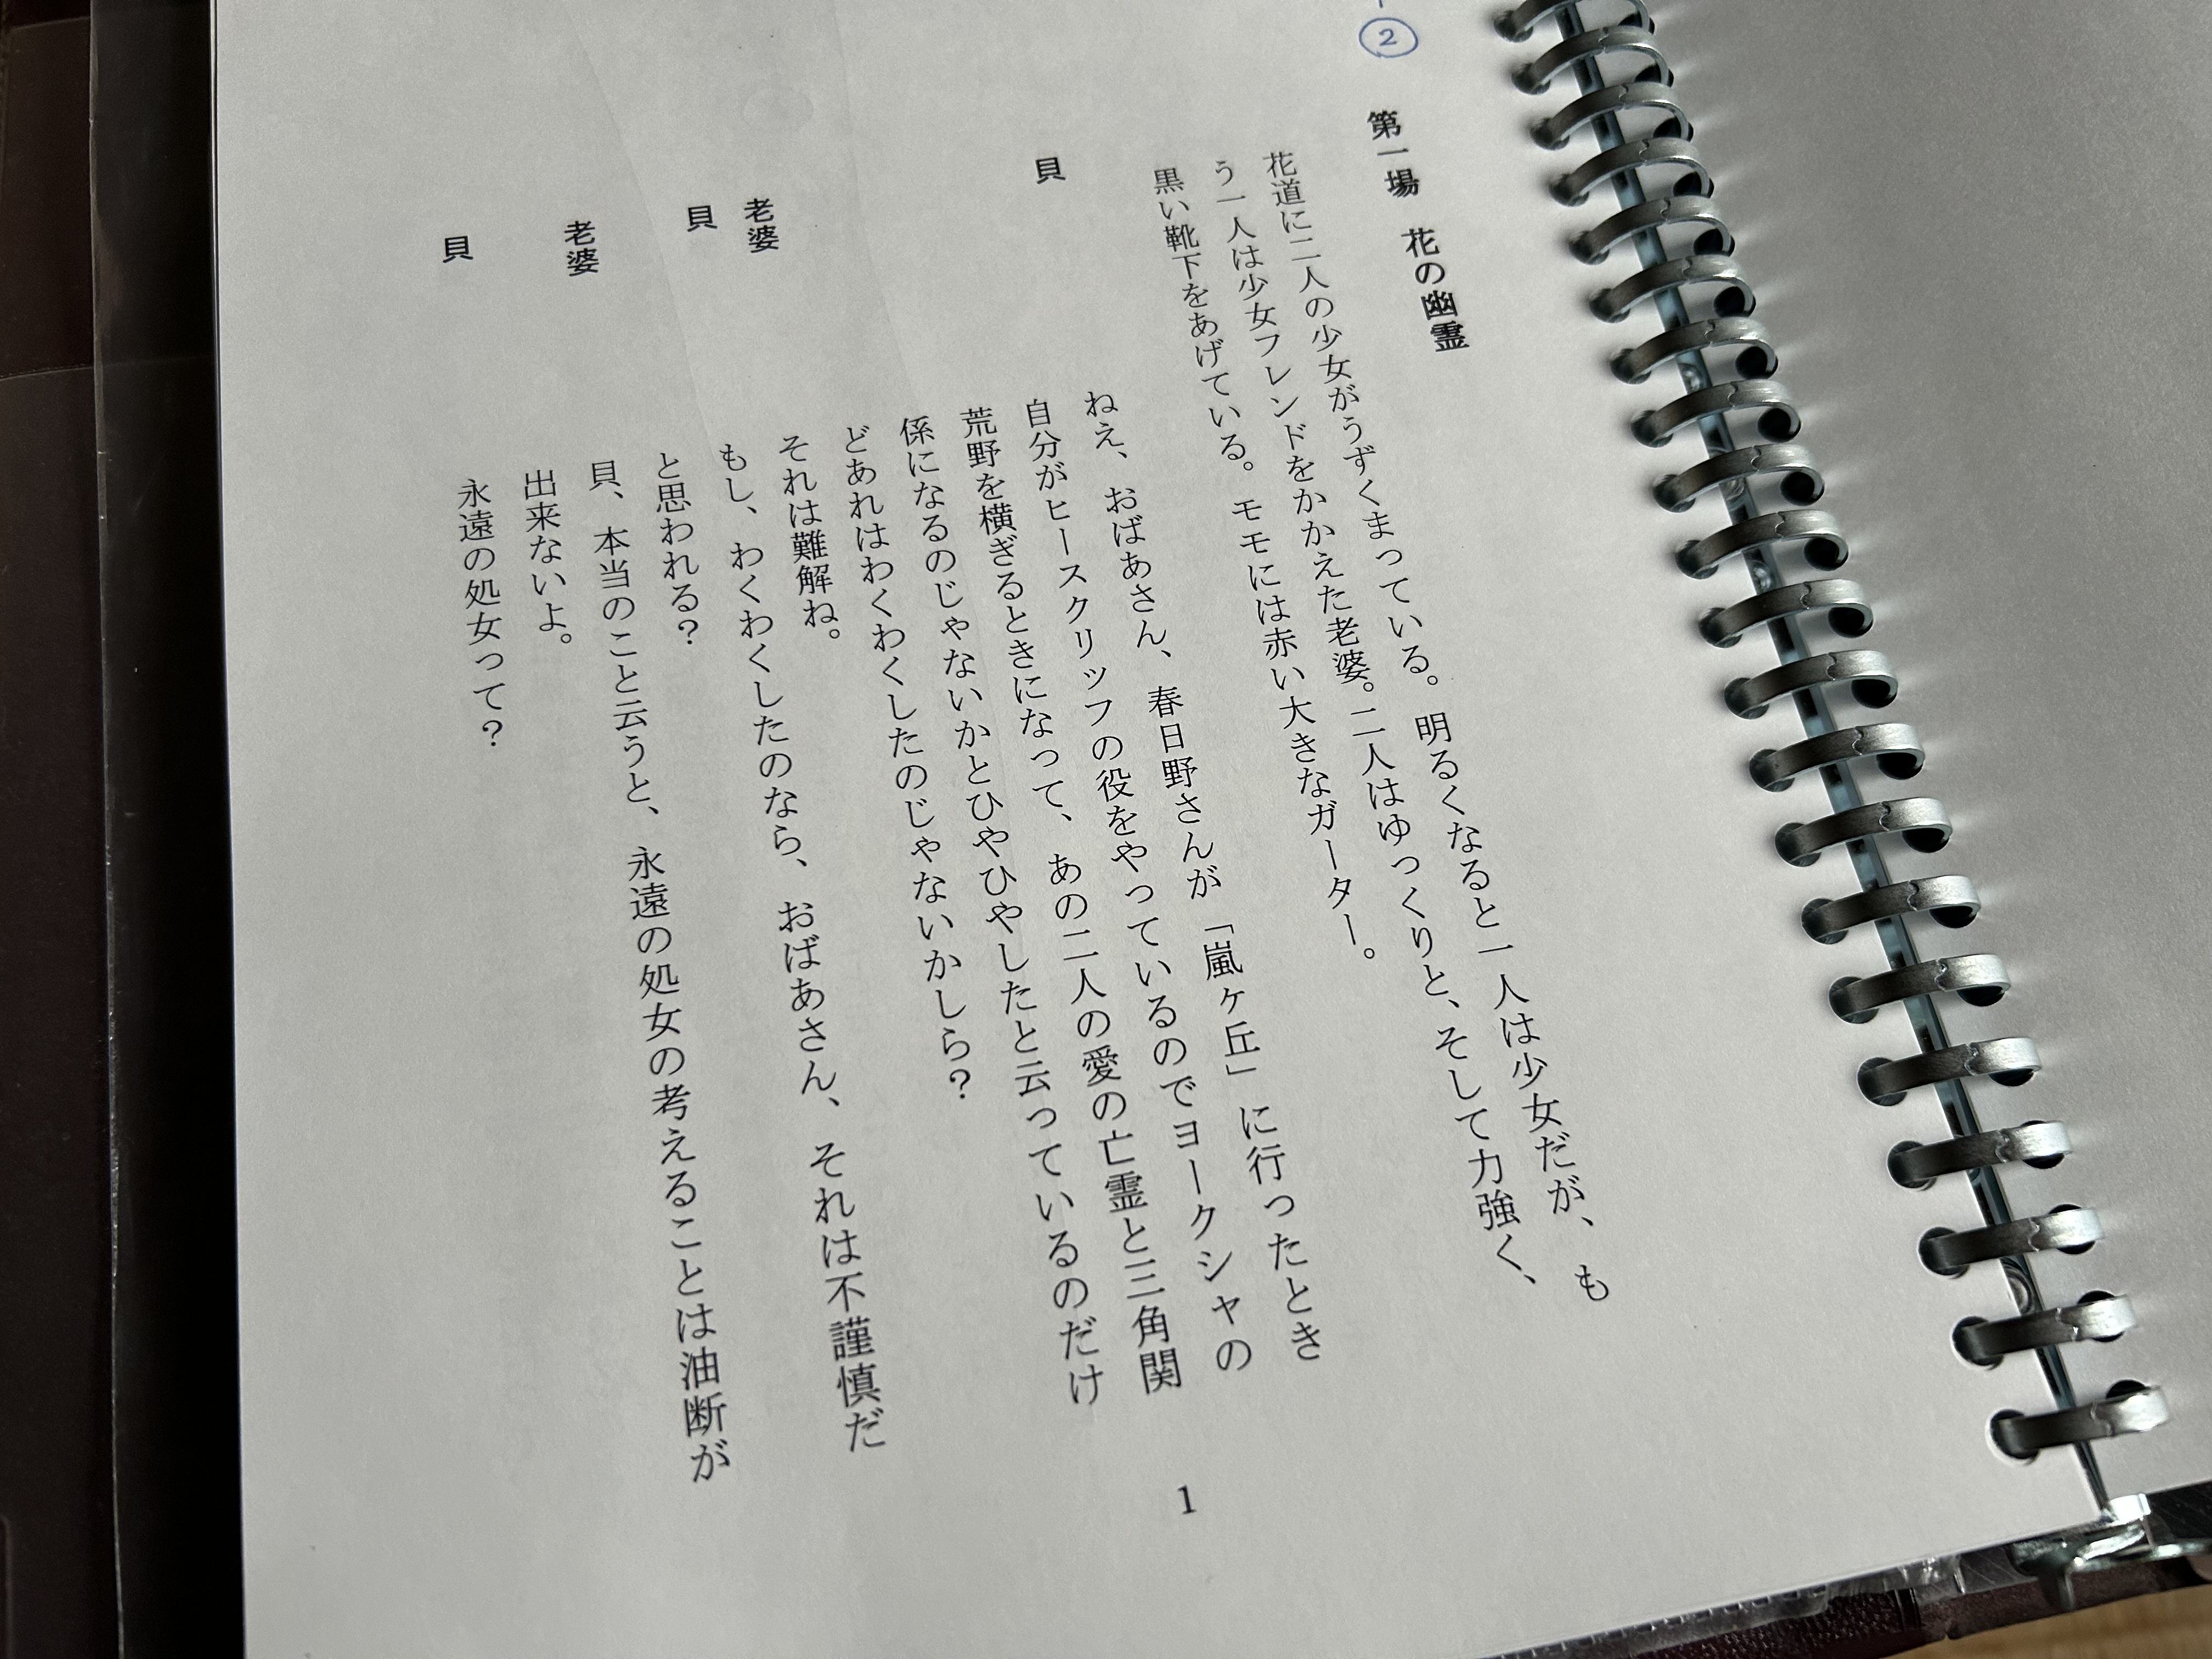 ②
第一場　花の幽霊
花道に二人の少女がうずくまっている。明るくなると一人は少女だが、も
う一人は少女フレンドをかかえた老婆。二人はゆっくりと、そして力強く、
黒い靴下をあげている。モモには赤い大きなガーター。
貝　ねえ、おばあさん、春日野さんが「嵐ヶ丘」に行ったとき
自分がヒースクリッフの役をやっているのでヨークシャの
荒野を横ぎるときになって、あの二人の愛の亡霊と三角関
係になるのじゃないかとひやひやしたと云っているのだけ
どあれはわくわくしたのじゃないかしら？
老婆　それは難解ね。
貝　もし、わくわくしたのなら、おばあさん、それは不謹慎だ
と思われる？
老婆　貝、本当のこと云うと、永遠の処女の考えることは油断が
出来ないよ。
貝　永遠の処女って？
1